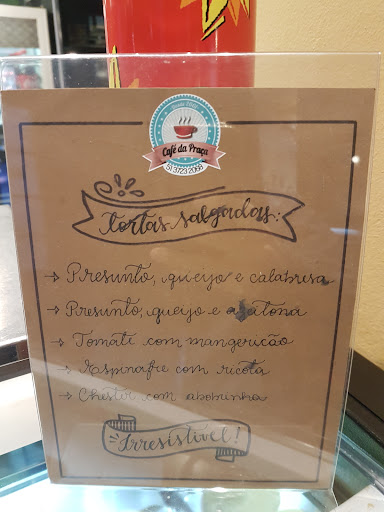 Café da Praça
51 3723 2068
Tortas salgadas:
→ Presunto, queijo e calabresa
→ Presunto, queijo e azeitona
→ Tomate com mangericão
→ Espinafre com ricota
→ Chester com abobrinha
Irresistível!